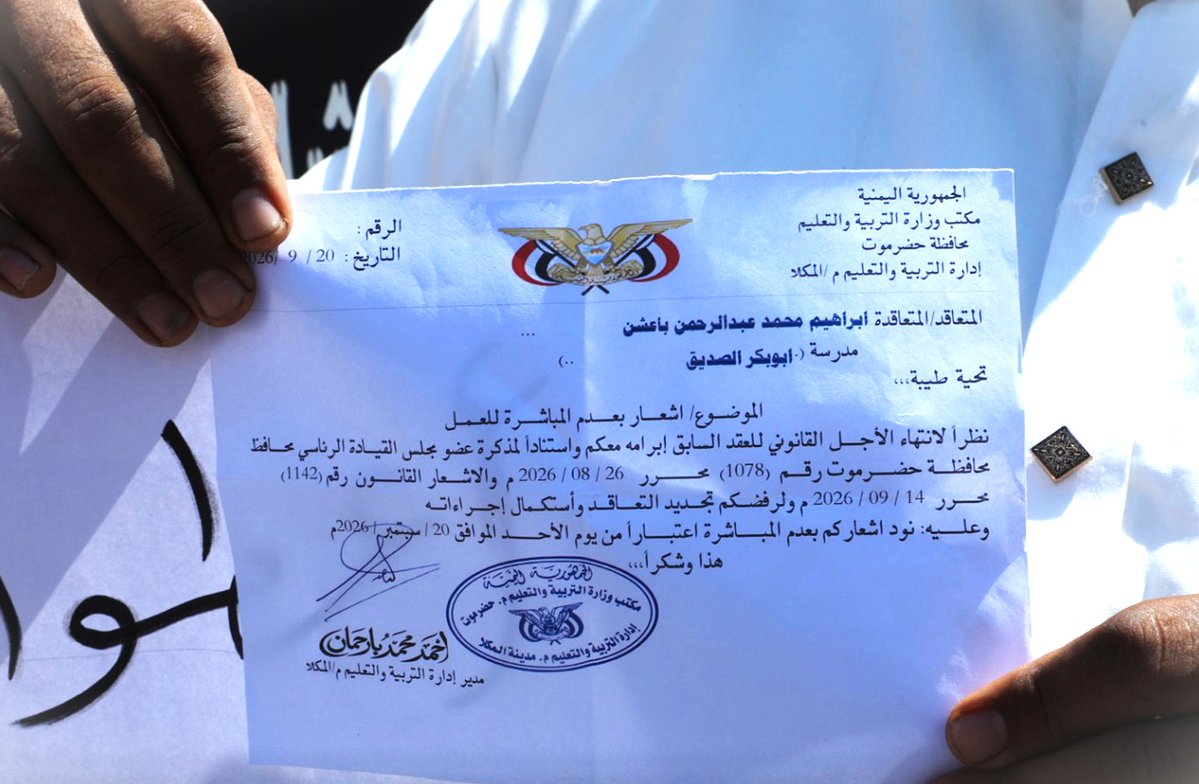 الجمهورية اليمنية
مكتب وزارة التربية والتعليم
محافظة حضرموت
إدارة التربية والتعليم م/المكلا
الرقم :
التاريخ: 20 / 9 /2026
المتعاقد/المتعاقدة ابراهيم محمد عبدالرحمن باعشن ...
مدرسة (.ابوبكر الصديق ..)
تحية طيبة،،،
الموضوع/ اشعار بعدم المباشرة للعمل
نظراً لانتهاء الأجل القانوني للعقد السابق إبرامه معكم واستناداً لمذكرة عضو مجلس القيادة الرئاسي محافظ
محافظة حضرموت رقم (1078) محرر 26 / 08 / 2026 م والاشعار القانون رقم (1142)
محرر 14 / 09 / 2026 م ولرفضكم تجديد التعاقد وأستكمال إجراءاته
وعليه: نود اشعاركم بعدم المباشرة اعتباراً من يوم الأحد الموافق 20 / سبتمبر / 2026م
هذا وشكراً،،،
الجمهورية اليمنية
مكتب وزارة التربية والتعليم م. حضرموت
إدارة التربية والتعليم م. مدينة المكلا
احمد محمد بارحمان
مدير إدارة التربية والتعليم م/المكلا